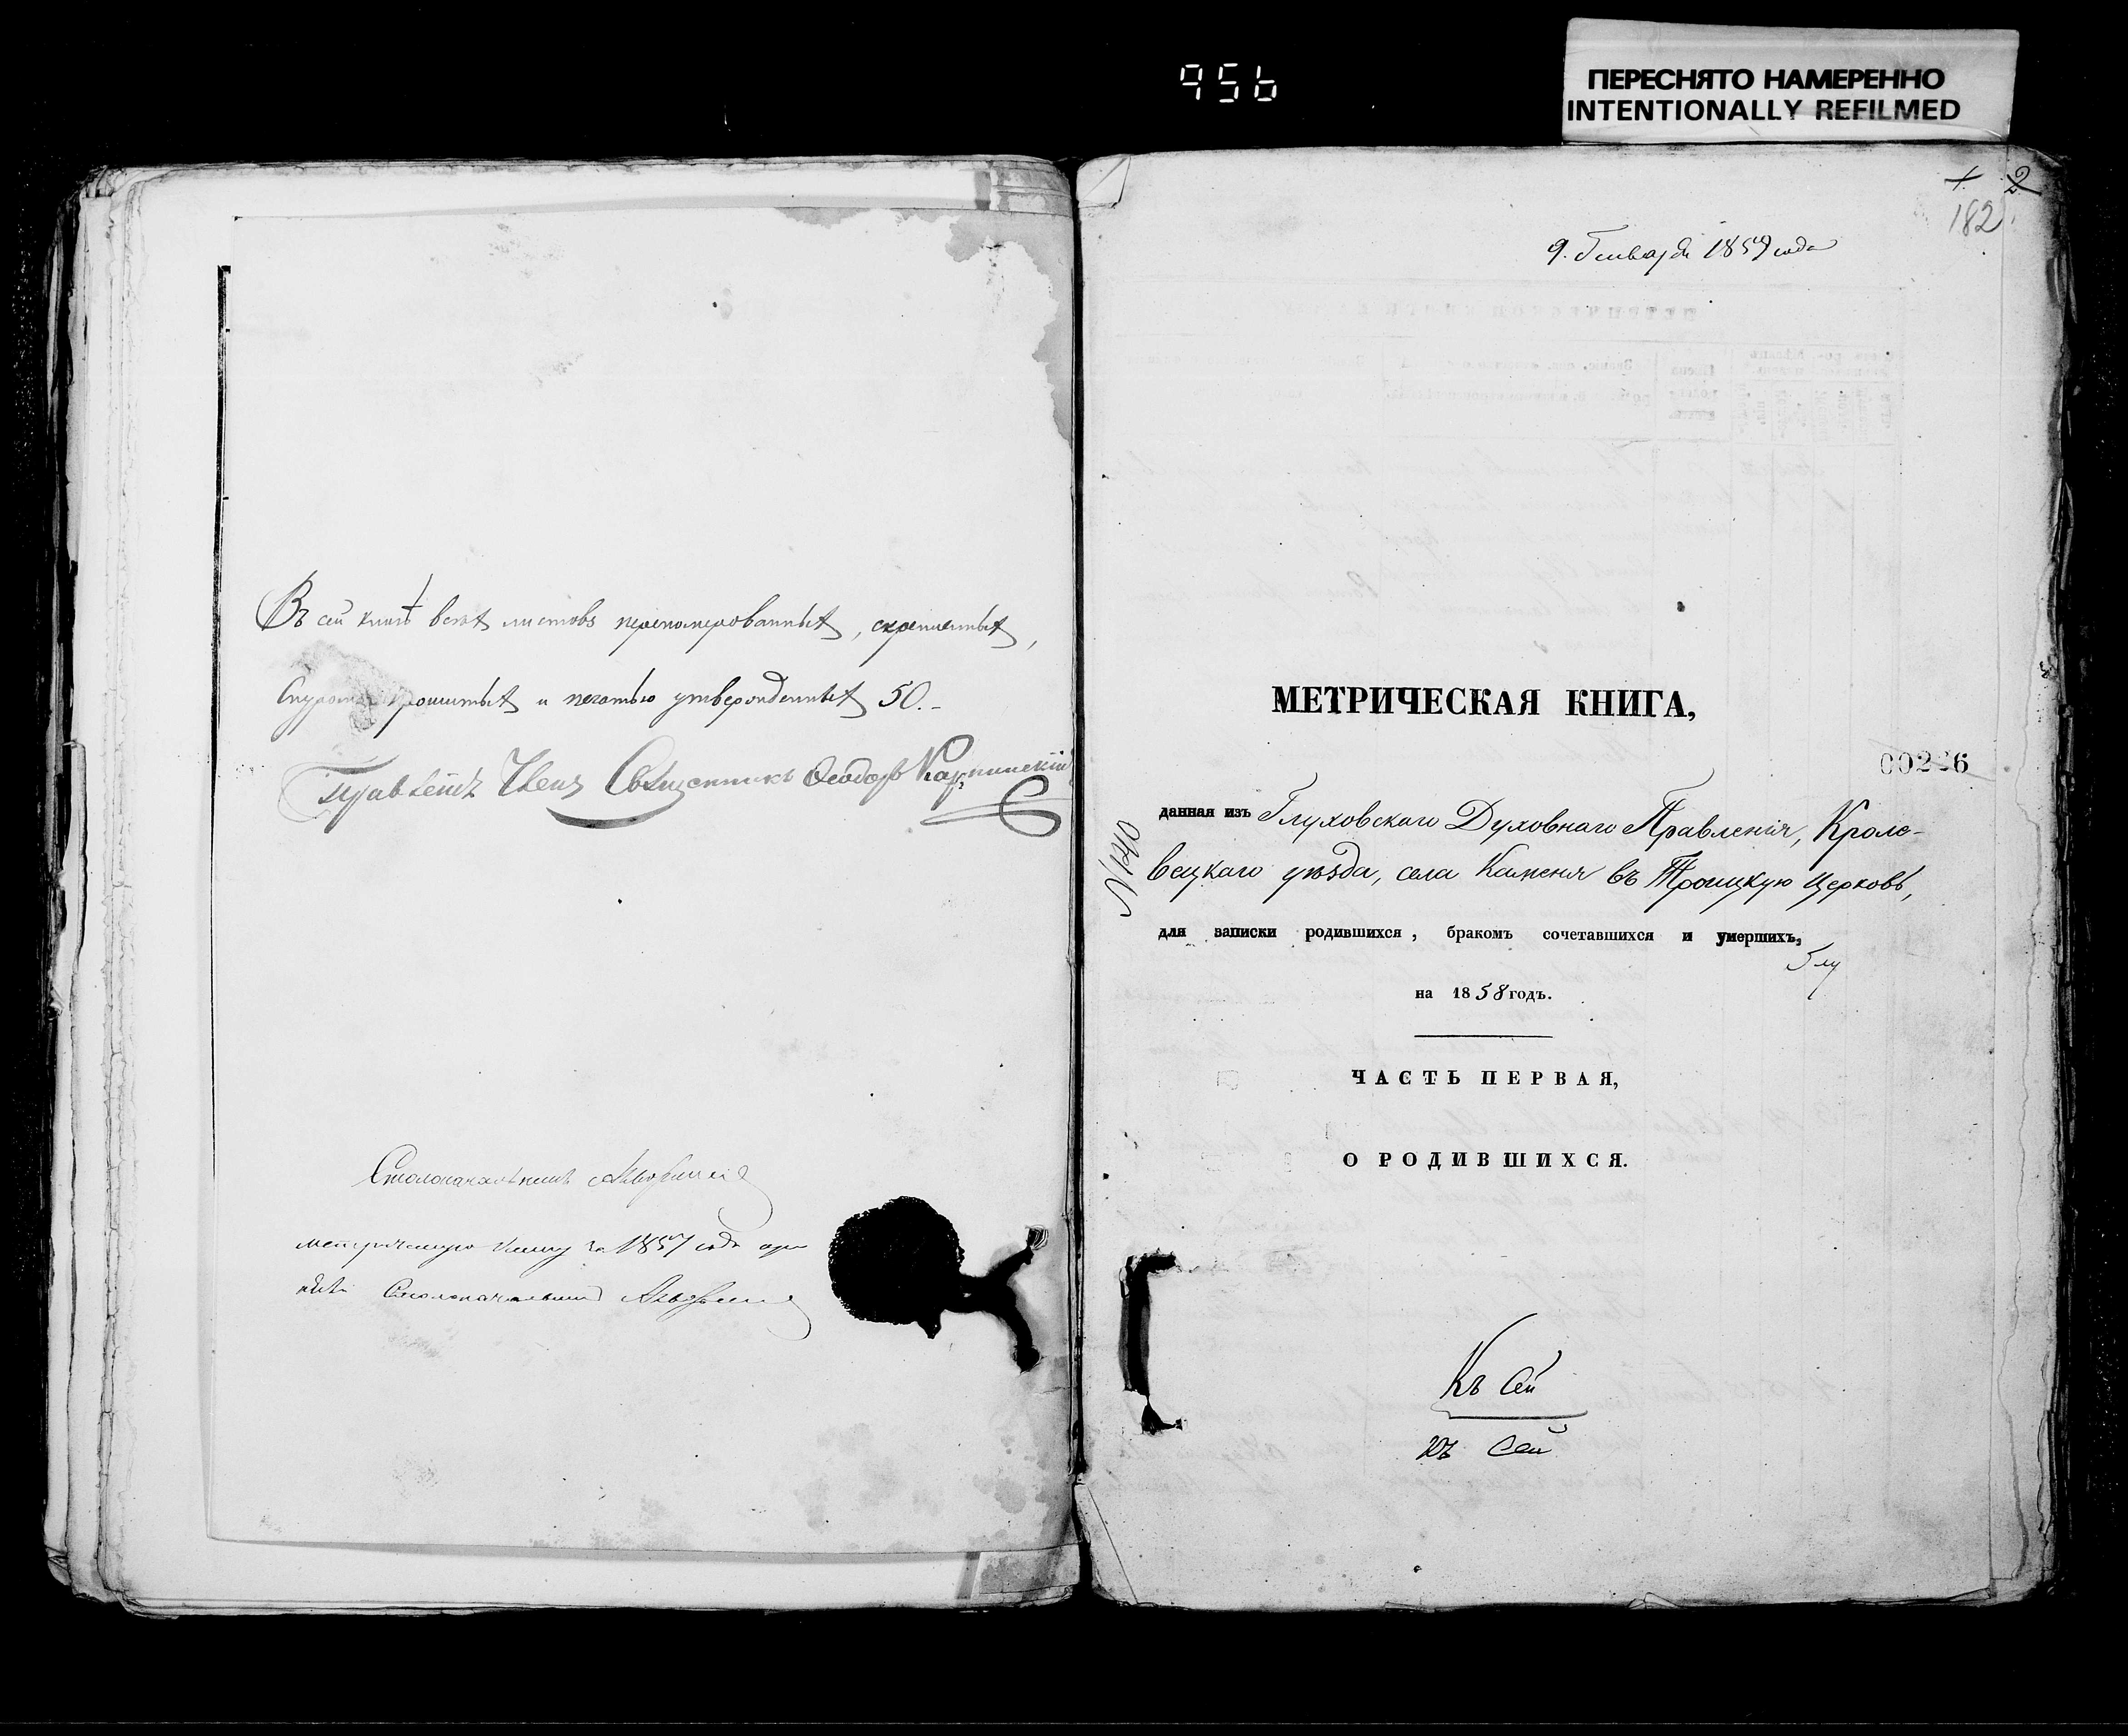 956
ПЕРЕСНЯТО НАМЕРЕННО
INTENTIONALLY REFILMED
Въ сей книгѣ всѣхъ листовъ перенумерованныхъ, скрепленныхъ,
Снуромъ прошитыхъ и печатью утвержденныхъ 50.-
Правленія Членъ Священникъ Ѳеодоръ Карпинскій
Столоначальникъ
метрическую книгу за 1857 года
Столоначальникъ
2
182
9. Генваря 1859 года
МЕТРИЧЕСКАЯ КНИГА,
00226
данная изъ Глуховскаго Духовнаго Правленія, Кроле-
вецкаго уѣзда, села Каменя въ Троицкую Церковь,
№140
для записки родившихся, бракомъ сочетавшихся и умершихъ,
Глу
на 1858 годъ.
ЧАСТЬ ПЕРВАЯ,
О РОДИВШИХСЯ.
Къ Сей
Къ Сей